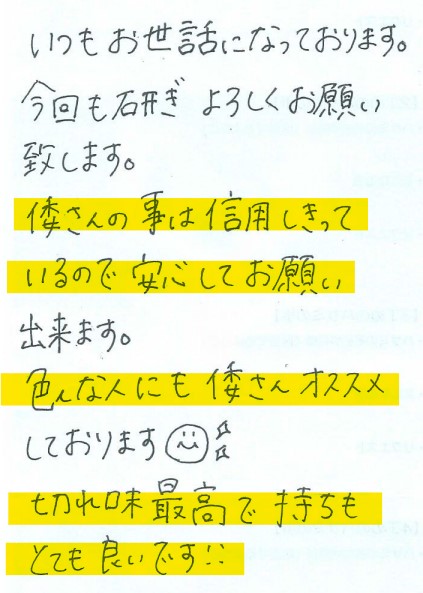 いつもお世話になっております。
今回も研ぎ よろしくお願い
致します。
倭さんの事は信用しきって
いるので安心してお願い
出来ます。
色んな人にも倭さんオススメ
しております
切れ味最高で持ちも
とても良いです!!